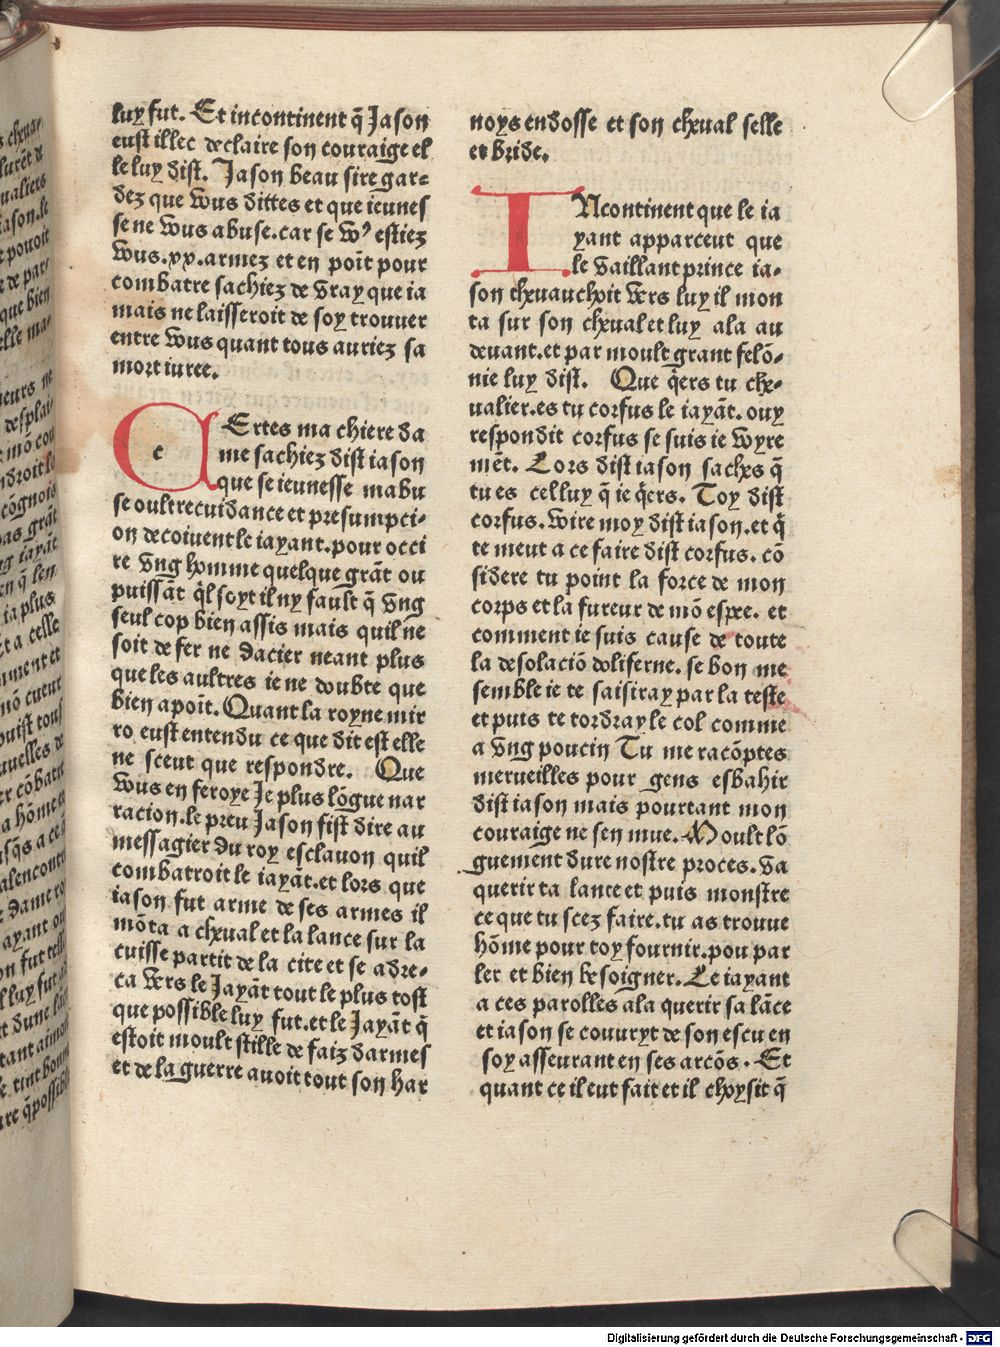 luy fut. Et incontinent q̃ Jason
eust illec declaire son couraige el
le luy dist. Jason beau sire gar-
dez que vous dittes et que ieunes
se ne vous abuse. car se vo⁹ estiez
vous .xx. armez et en poĩt pour
combatre sachiez de vray que ia
mais ne laisseroit de soy trouuer
entre vous quant tous auriez sa
mort iuree.
c
CErtes ma chiere da
me sachiez dist iason
que se ieunesse mabu
se oultrecuidance et presumpci-
on decoiuent le iayant. pour occi
re vng homme quelque grãt ou
puissãt q̃l soyt il ny fault q̃ vng
seul cop bien assis mais quil ne
soit de fer ne dacier neant plus
que les aultres ie ne doubte que
bien apoĩt. Quant la royne mir
ro eust entendu ce que dit est elle
ne sceut que respondre. Que
vous en feroye Je plus lõgue nar
racion. le preu Jason fist dire au
messagier du roy esclauon quil
combatroit le iayãt. et lors que
iason fut arme de ses armes il
mõta a cheual et la lance sur la
cuisse partit de la cite et se adre-
ca vers le Jayãt tout le plus tost
que possible luy fut. et le Jayãt q̃
estoit moult stille de faiz darmes
et de la guerre auoit tout son har
noys endosse et son cheual selle
et bride.
INcontinent que le ia
yant apparceut que
le vaillant prince ia-
son cheuauchoit vers luy il mon
ta sur son cheual et luy ala au
deuant. et par moult grant felõ-
nie luy dist. Que q̃ers tu che-
ualier. es tu corfus le iayãt. ouy
respondit corfus se suis ie voyre
mẽt. Lors dist iason saches q̃
tu es celluy q̃ ie q̃ers. Toy dist
corfus. voire moy dist iason. et q̃
te meut a ce faire dist corfus. cõ
sidere tu point la force de mon
corps et la fureur de mõ espee. et
comment ie suis cause de toute
la desolaciõ doliferne. se bon me
semble ie te saisiray par la teste
et puis te tordray le col comme
a vng poucin Tu me racõptes
merueilles pour gens esbahir
dist iason mais pourtant mon
couraige ne sen mue. Moult lõ
guement dure nostre proces. va
querir ta lance et puis monstre
ce que tu scez faire. tu as trouue
hõme pour toy fournir. pou par
ler et bien besoigner. Le iayant
a ces parolles ala querir sa lãce
et iason se couuryt de son escu en
soy asseurant en ses arcõs. Et
quant ce il eut fait et il choysit q̃
Digitalisierung gefördert durch die Deutsche Forschungsgemeinschaft - DFG